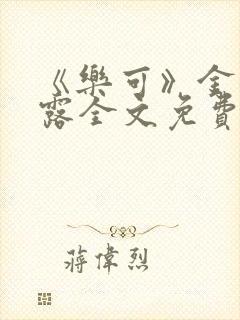 《樂可》金
露全文免費
蔣偉烈